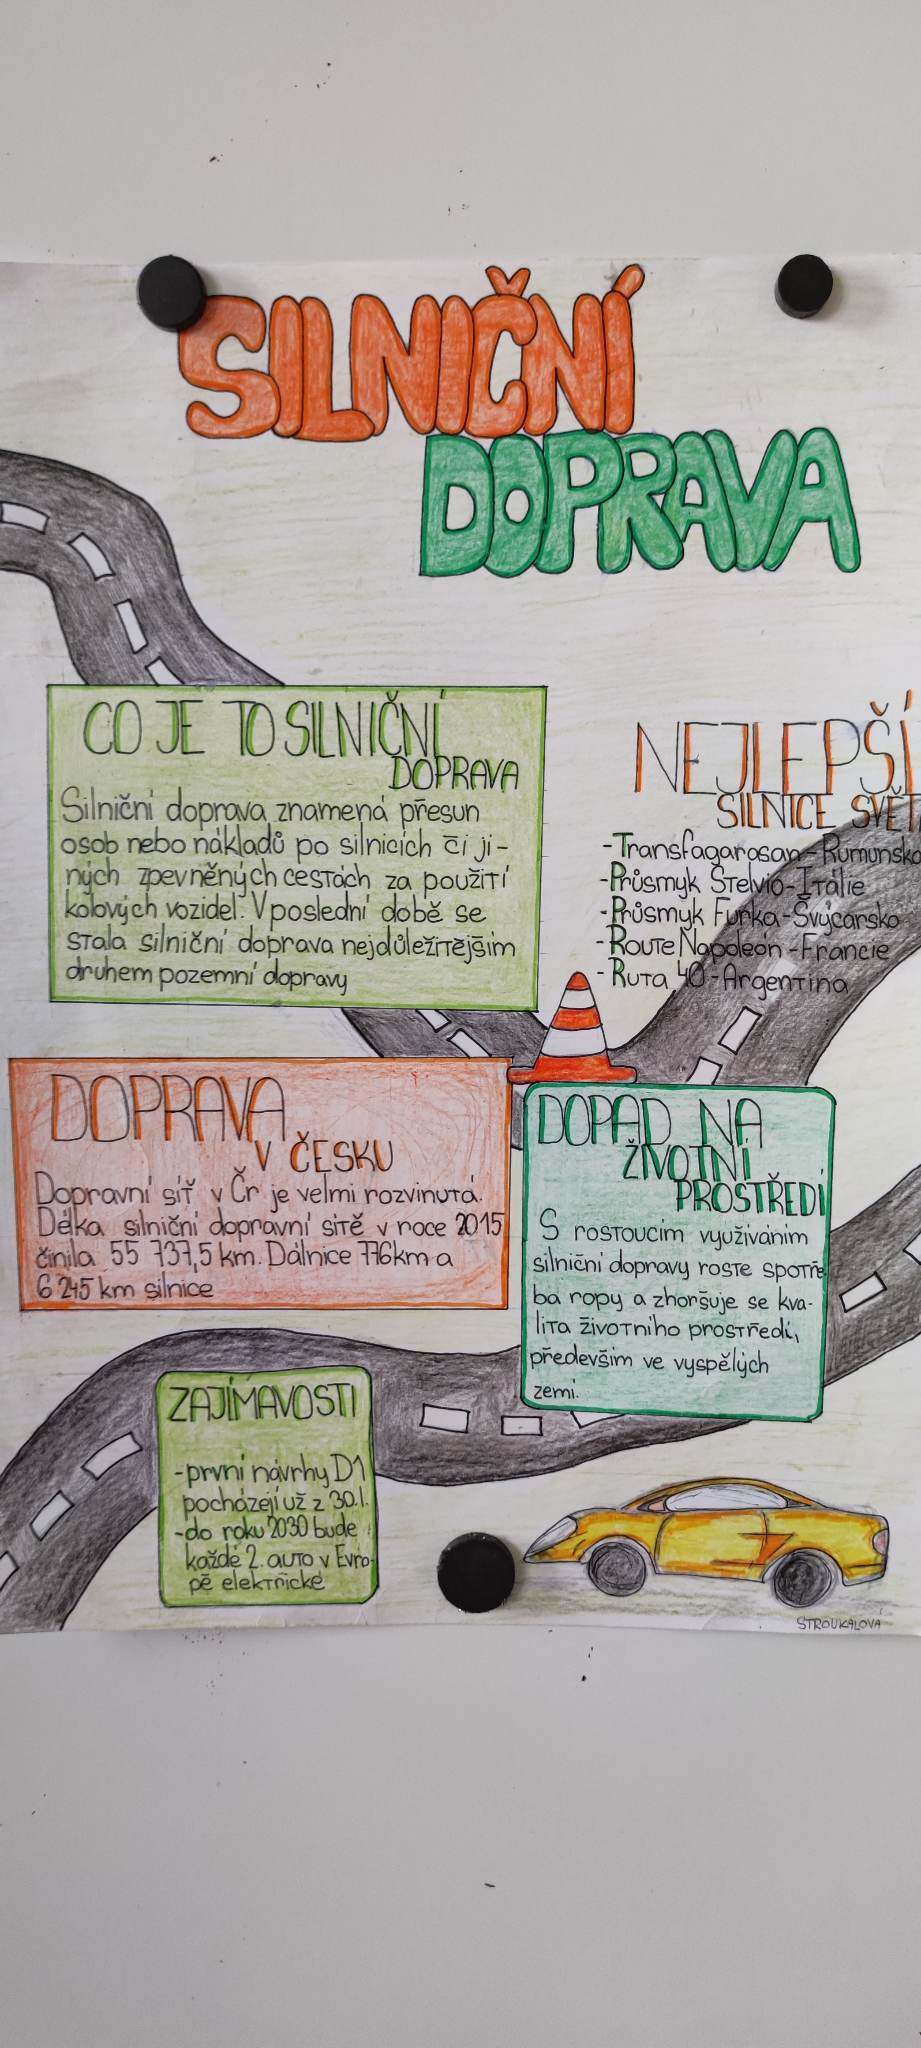 SILNIČNÍ
DOPRAVA
CO JE TO SILNIČNÍ
DOPRAVA
Silniční doprava znamená přesun
osob nebo nákladů po silnicích či ji-
ných zpevněných cestách za použití
kolových vozidel. V poslední době se
stala silniční doprava nejdůležitějším
druhem pozemní dopravy
NEJLEPŠÍ
SILNICE SVĚT
-Transfagarasan-Rumunsko
-Průsmyk Stelvio-Itálie
-Průsmyk Furka-Švýcarsko
-Route Napoleon-Francie
-Ruta 40-Argentina
DOPRAVA
V ČESKU
Dopravní síť v Čr je velmi rozvinutá.
Délka silniční dopravní sítě v roce 2015
činila 55 737,5 km. Dálnice 776km a
6 245 km silnice
DOPAD NA
ŽIVOTNÍ
PROSTŘEDÍ
S rostoucím využíváním
silniční dopravy roste spotře
ba ropy a zhoršuje se kva-
lita životního prostředí,
především ve vyspělých
zemí.
ZAJÍMAVOSTI
-první návrhy D1
pocházejí už z 30.l.
-do roku 2030 bude
každé 2. auto v Evro-
pě elektrické
STROUKALOVÁ